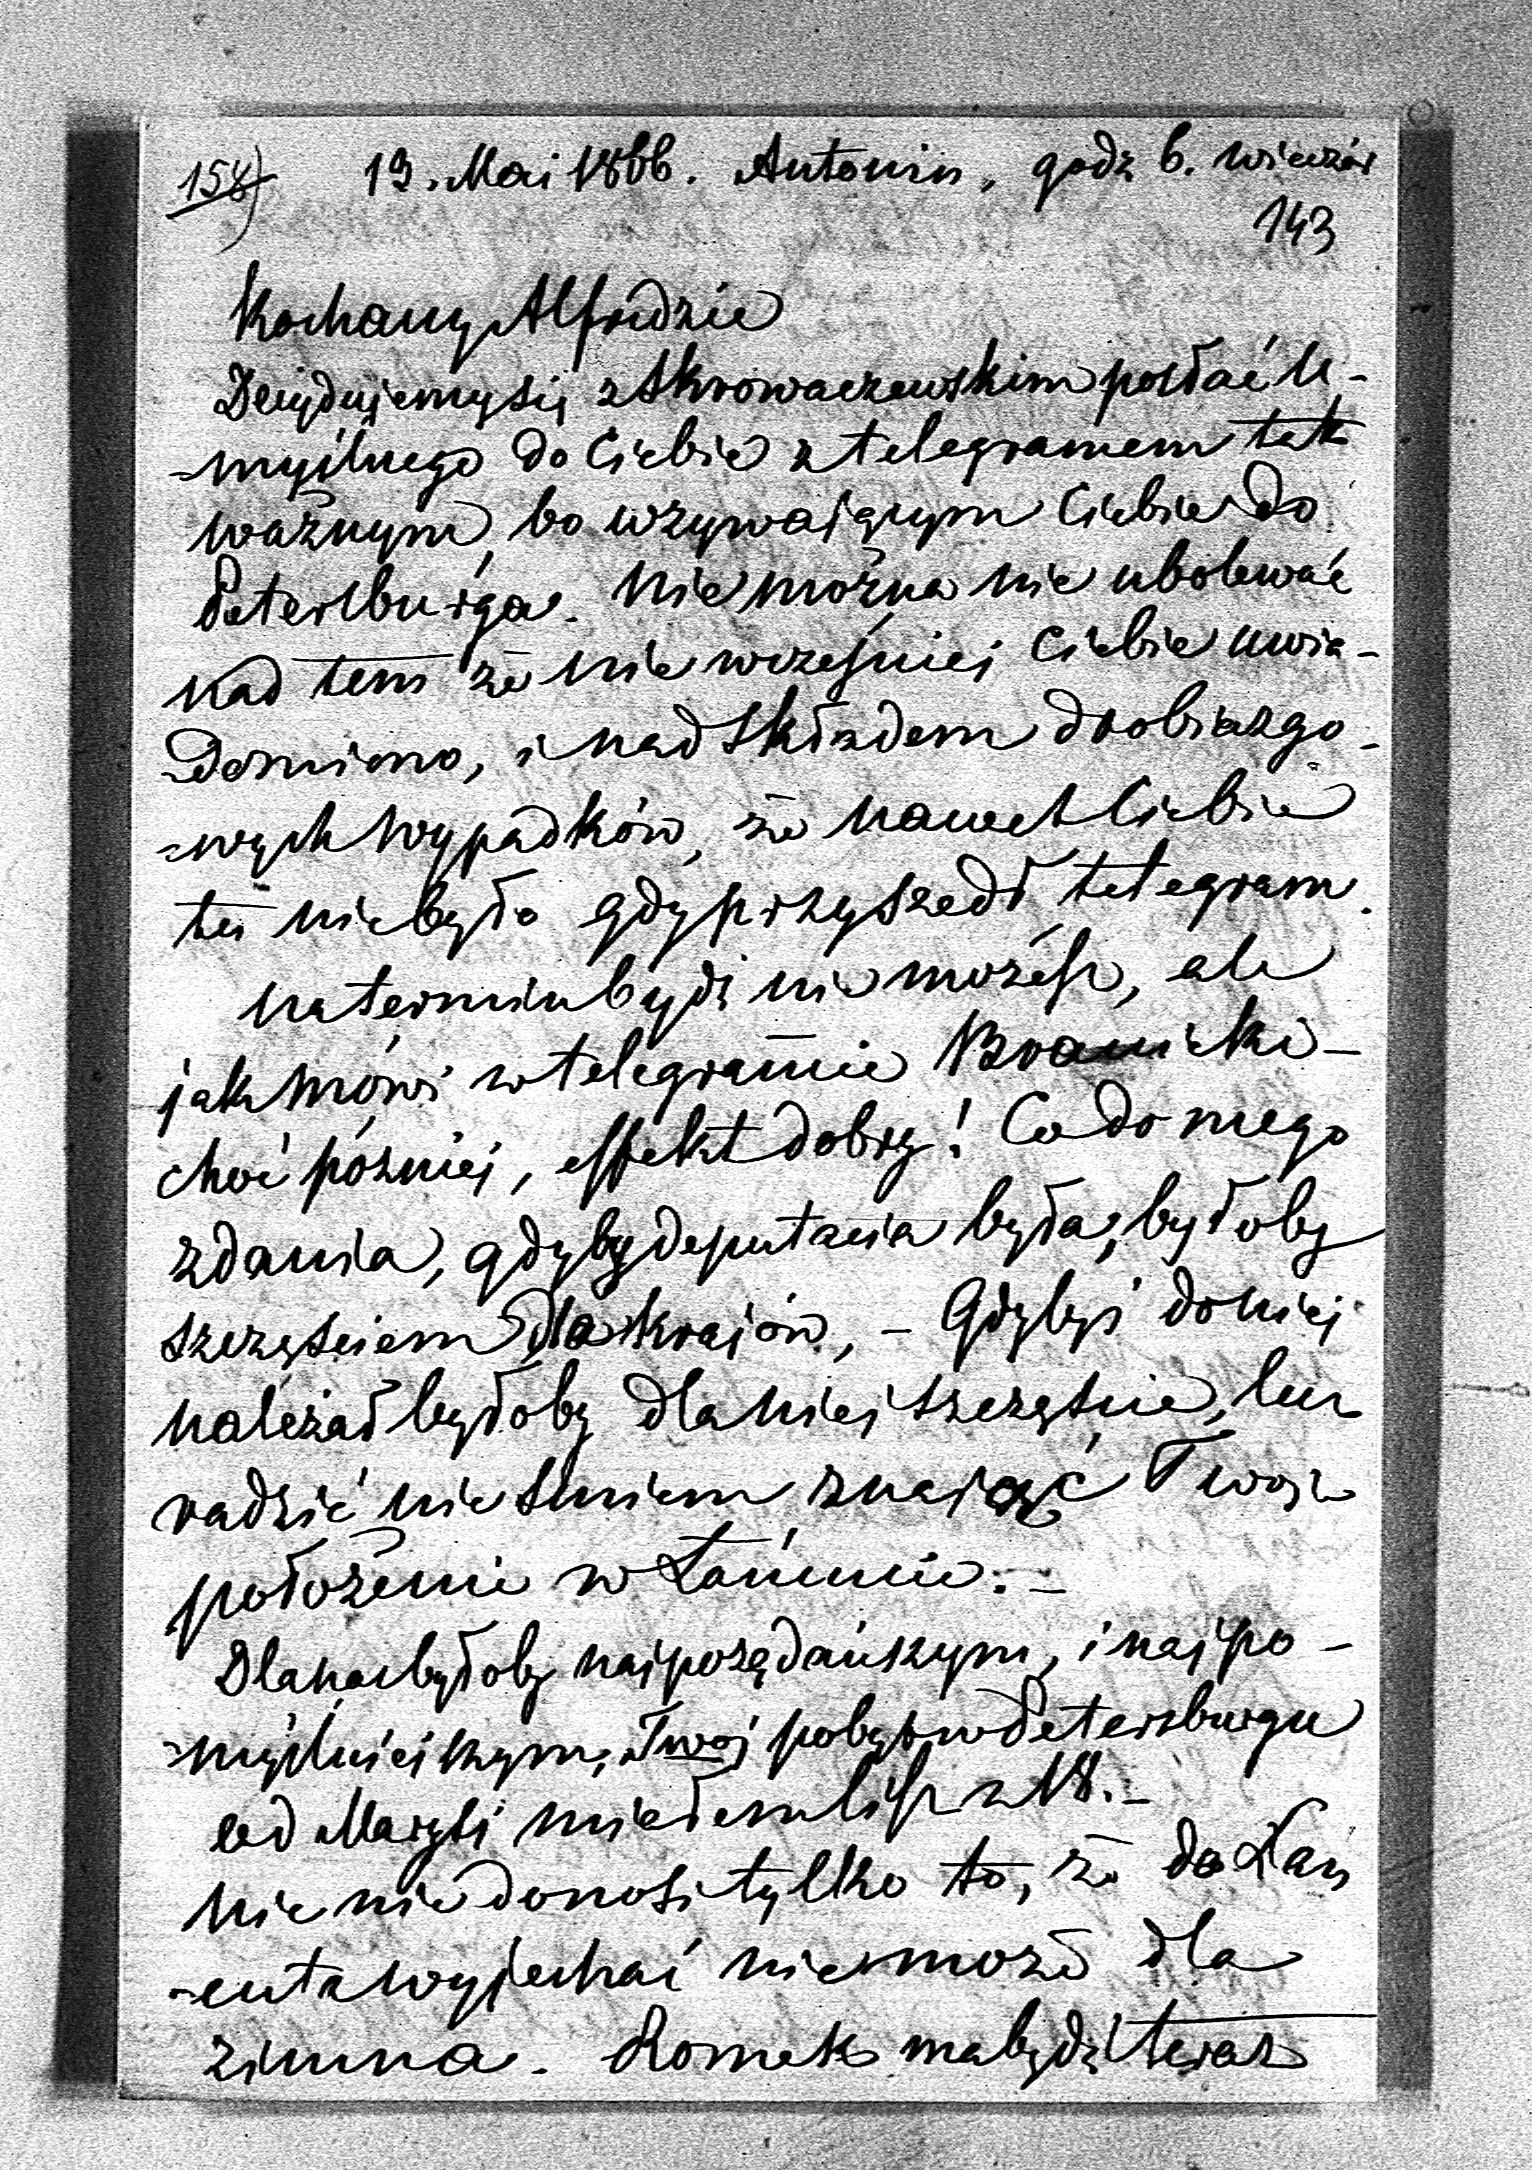 158) 19. Mai 1866. Antonin, godz 6. wieczór
143
Kochany Alfredzie
Decydujemy się z Skrowaczewskim posłać u-
-myślnego do Ciebie z telegramem tak
ważnym, bo wzywającym Ciebie do
Petersburga. Nie można nie ubolewać
nad tem że nie wcześniej Ciebie uwia-
-domiono, i nad składem drobiazgo-
-wych wypadków, że nawet Ciebie
tu niebyło gdy przyszedł telegram.
na termin bydź nie możesz, ale
jak mówi w telegramie Branicki -
choć pózniej, effekt dobry! Co do mego
zdania, gdyby deputacia była, byłoby
szczęściem dla krajów, - Gdybyś do niej
należał byłoby dla niej szczęście, lecz
radzić nie śmiem znając Twoje
położenie w Łańcucie. -
Dla nas byłoby najpożądańszym, i najpo-
-myślniejszym, Twój pobyt w Petersburgu
od Marysi miałem list z 18. -
nic nie donosi tylko to, że do Łań
-cuta wyjechać nie może dla
zimna. Romek ma bydź teraz